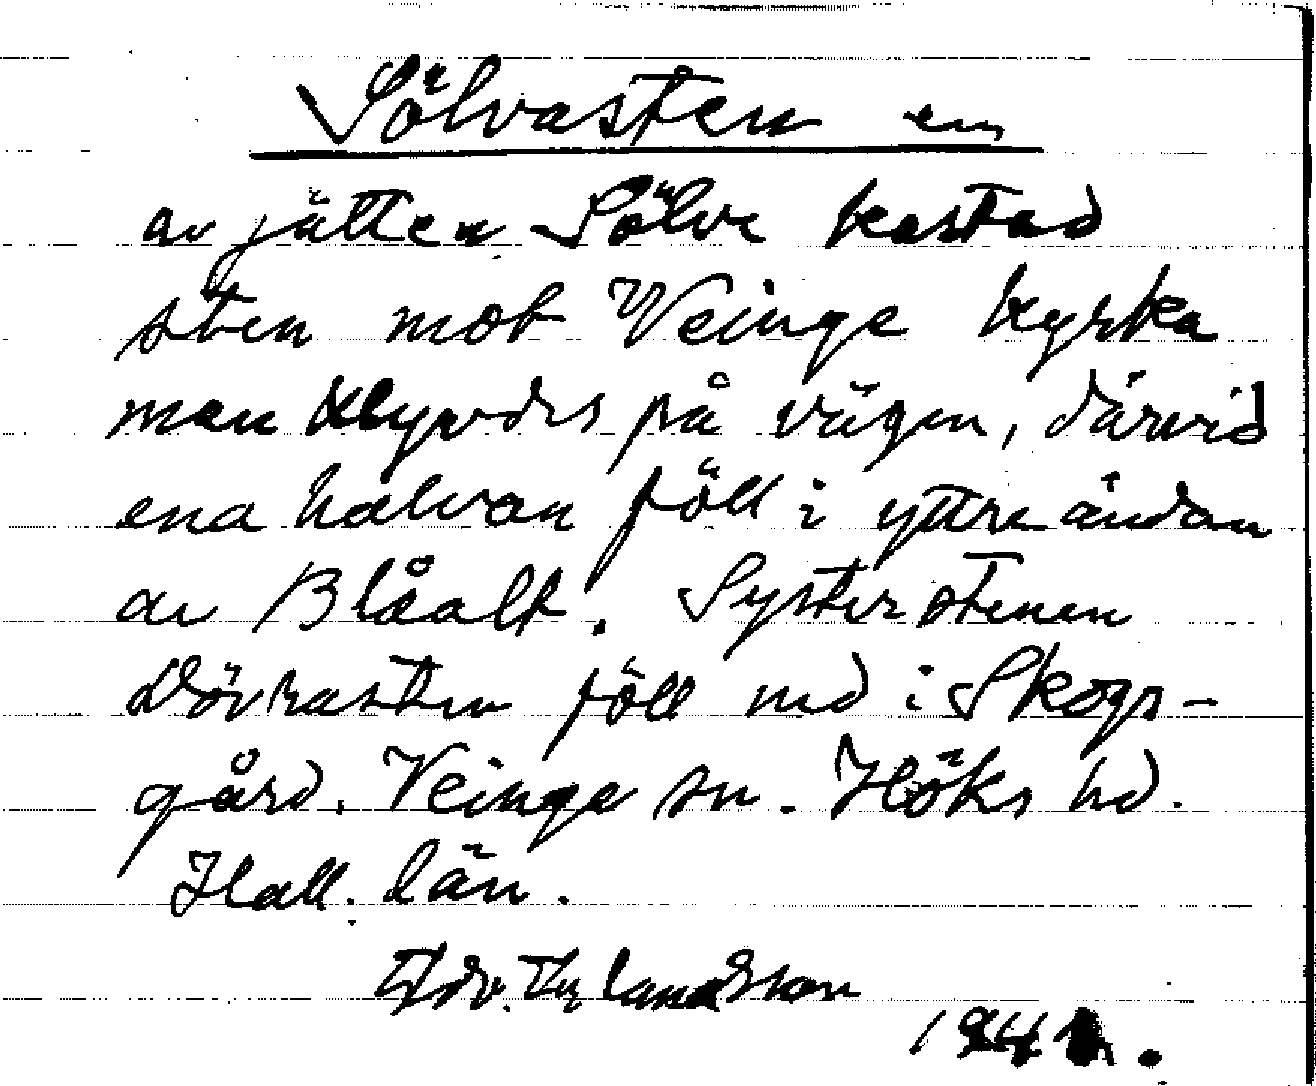 Sölvasten en
av jätten Sölve kastad
sten mot Veinge kyrka
men klyvdes på vägen, därvid
ena halvan föll i yttre ändan
av Blåalt. Systerstenen
Dörrasten föll ned i Skogs-
gård. Veinge sn. Höks hd.
Hall. län.
1941.